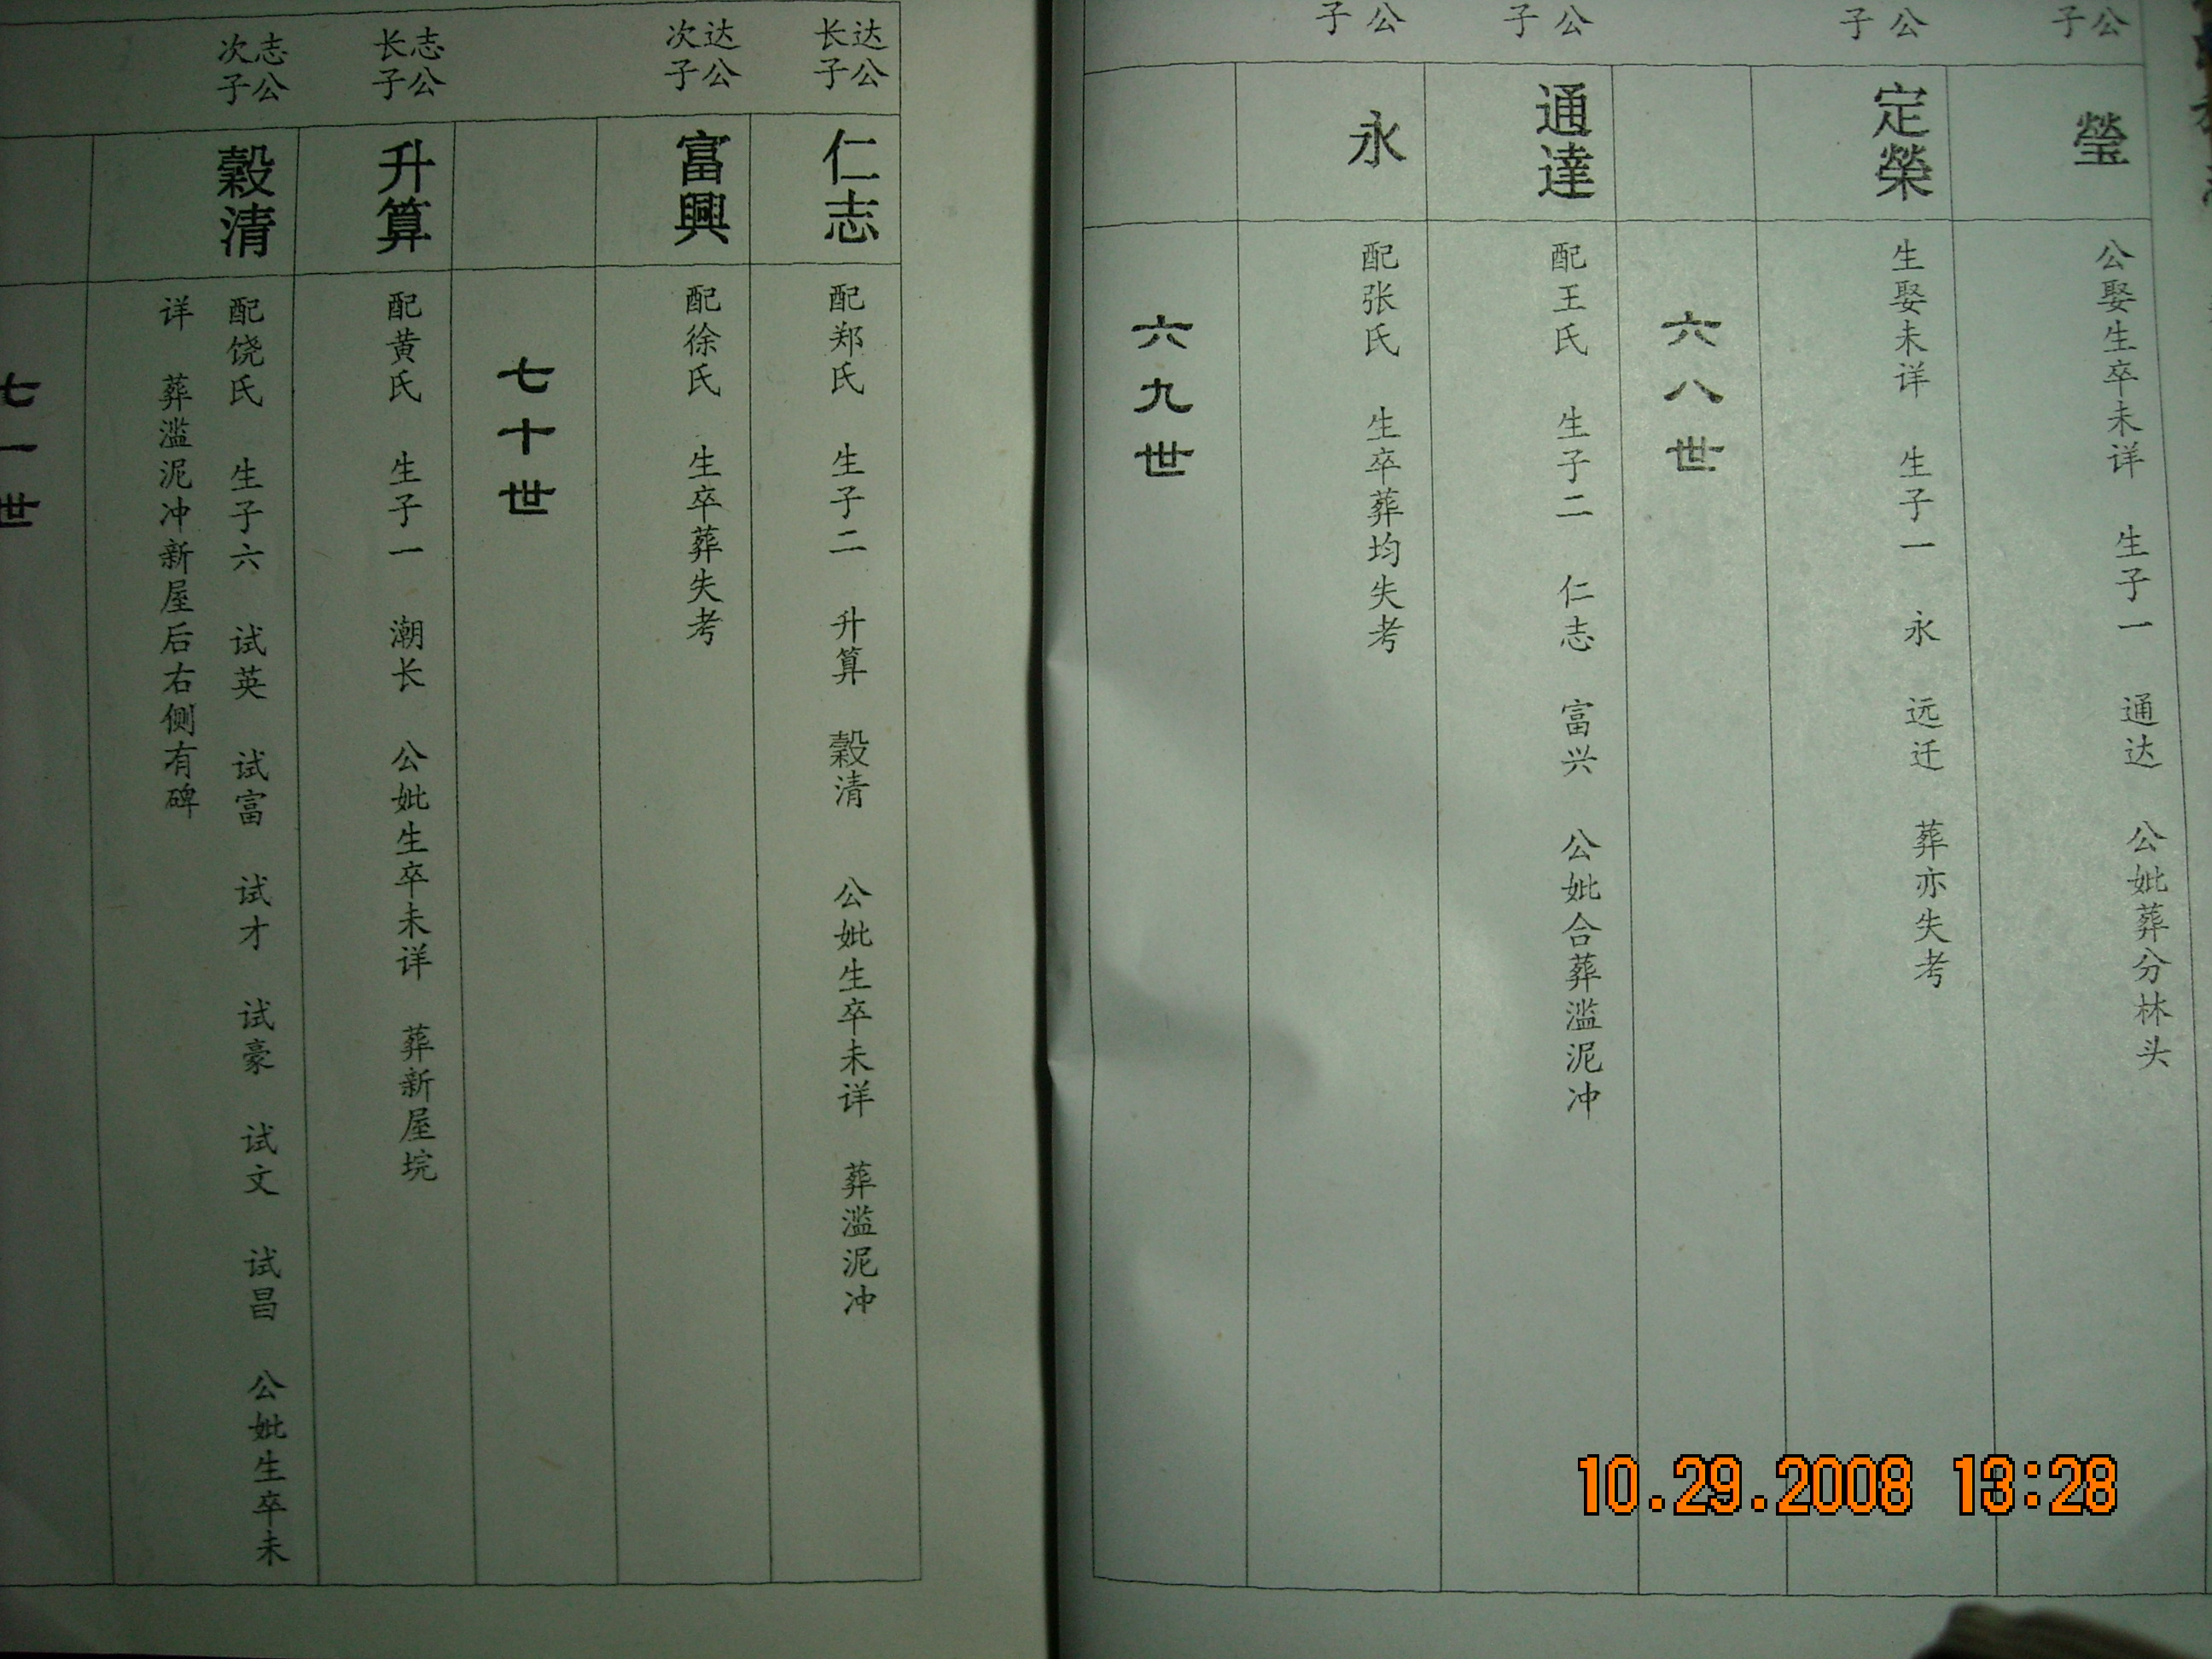 公子
瑩
公娶生卒未详 生子一 通达 公妣葬分林头
公子
定榮
生娶未详 生子一 永 远迁 葬亦失考
六八世
公子
通達
配王氏 生子二 仁志 富兴 公妣合葬滥泥冲
公子
永
配张氏 生卒葬均失考
六九世
达公
长子
仁志
配郑氏 生子二 升算 榖清 公妣生卒未详 葬滥泥冲
达公
次子
富興
配徐氏 生卒葬失考
七十世
志公
长子
升算
配黄氏 生子一 潮长 公妣生卒未详 葬新屋垸
志公
次子
榖清
配饶氏 生子六 试英 试富 试才 试豪 试文 试昌 公妣生卒未
详 葬滥泥冲新屋后右侧有碑
七一世
10.29.2008 13:28